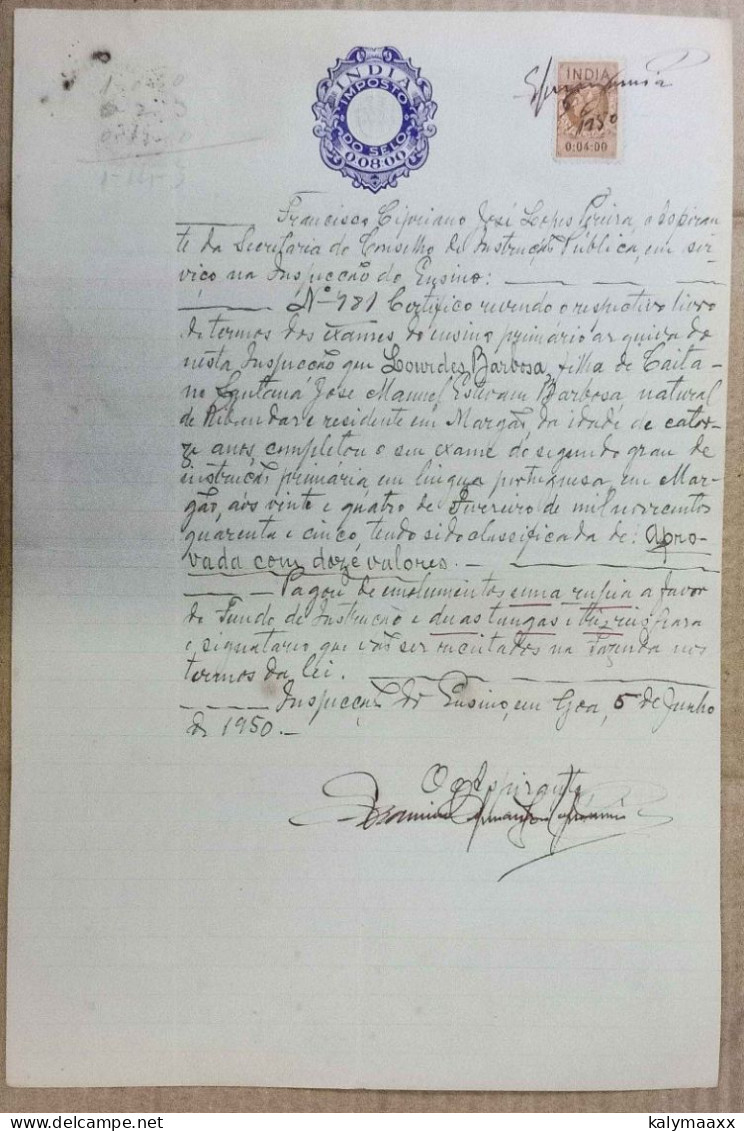 INDIA
IMPOSTO
DO SELO
0.08:00
INDIA
1950
0:04:00
Francisco Cipriano José Lopes Pereira, o aspiran-
te da Secretaria do Conselho de Instrução Pública, em ser-
viço na Inspecção do Ensino:
Nº 981 Certifico revendo o respectivo livro
de termos dos exames do ensino primário arquivado
nesta Inspecção que Lourdes Barbosa, filha de Caita-
no Santana José Manuel Estevam Barbosa, natural
de Ribandar e residente em Margão da idade de cator-
ze anos, completou o seu exame do segundo grau de
instrução primária em lingua portuguesa, em Mar-
gão, aos vinte e quatro de Fevereiro de mil novecentos
quarenta e cinco, tendo sido classificada de: Apro-
vada com doze valores.
Pagou de emolumentos uma rupia a favor
do Fundo de Instrução e duas tangas e três reis para
o signatario que vão ser recitados na Fazenda nos
termos da lei.
Inspecção do Ensino, em Goa, 5 de Junho
de 1950.
O Aspirante
kalymaaxx